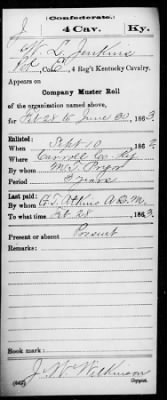 (Confederate.)
J 4 Cav. Ky.
W. L. Jenkins
Pvt, Co. , 4 Reg't Kentucky Cavalry.
Appears on
Company Muster Roll
of the organization named above,
for Feb 28 to June 30, 1863.
Enlisted:
When Sept 10, 186
Where Carroll Co. Ky
By whom M. T. Pryor
Period 3 years
Last paid:
By whom Atkins A.Q.M.
To what time Feb. 28, 1863.
Present or absent Present
Remarks:
Book mark:
J. W. Wilkinson
(642) Copyist.